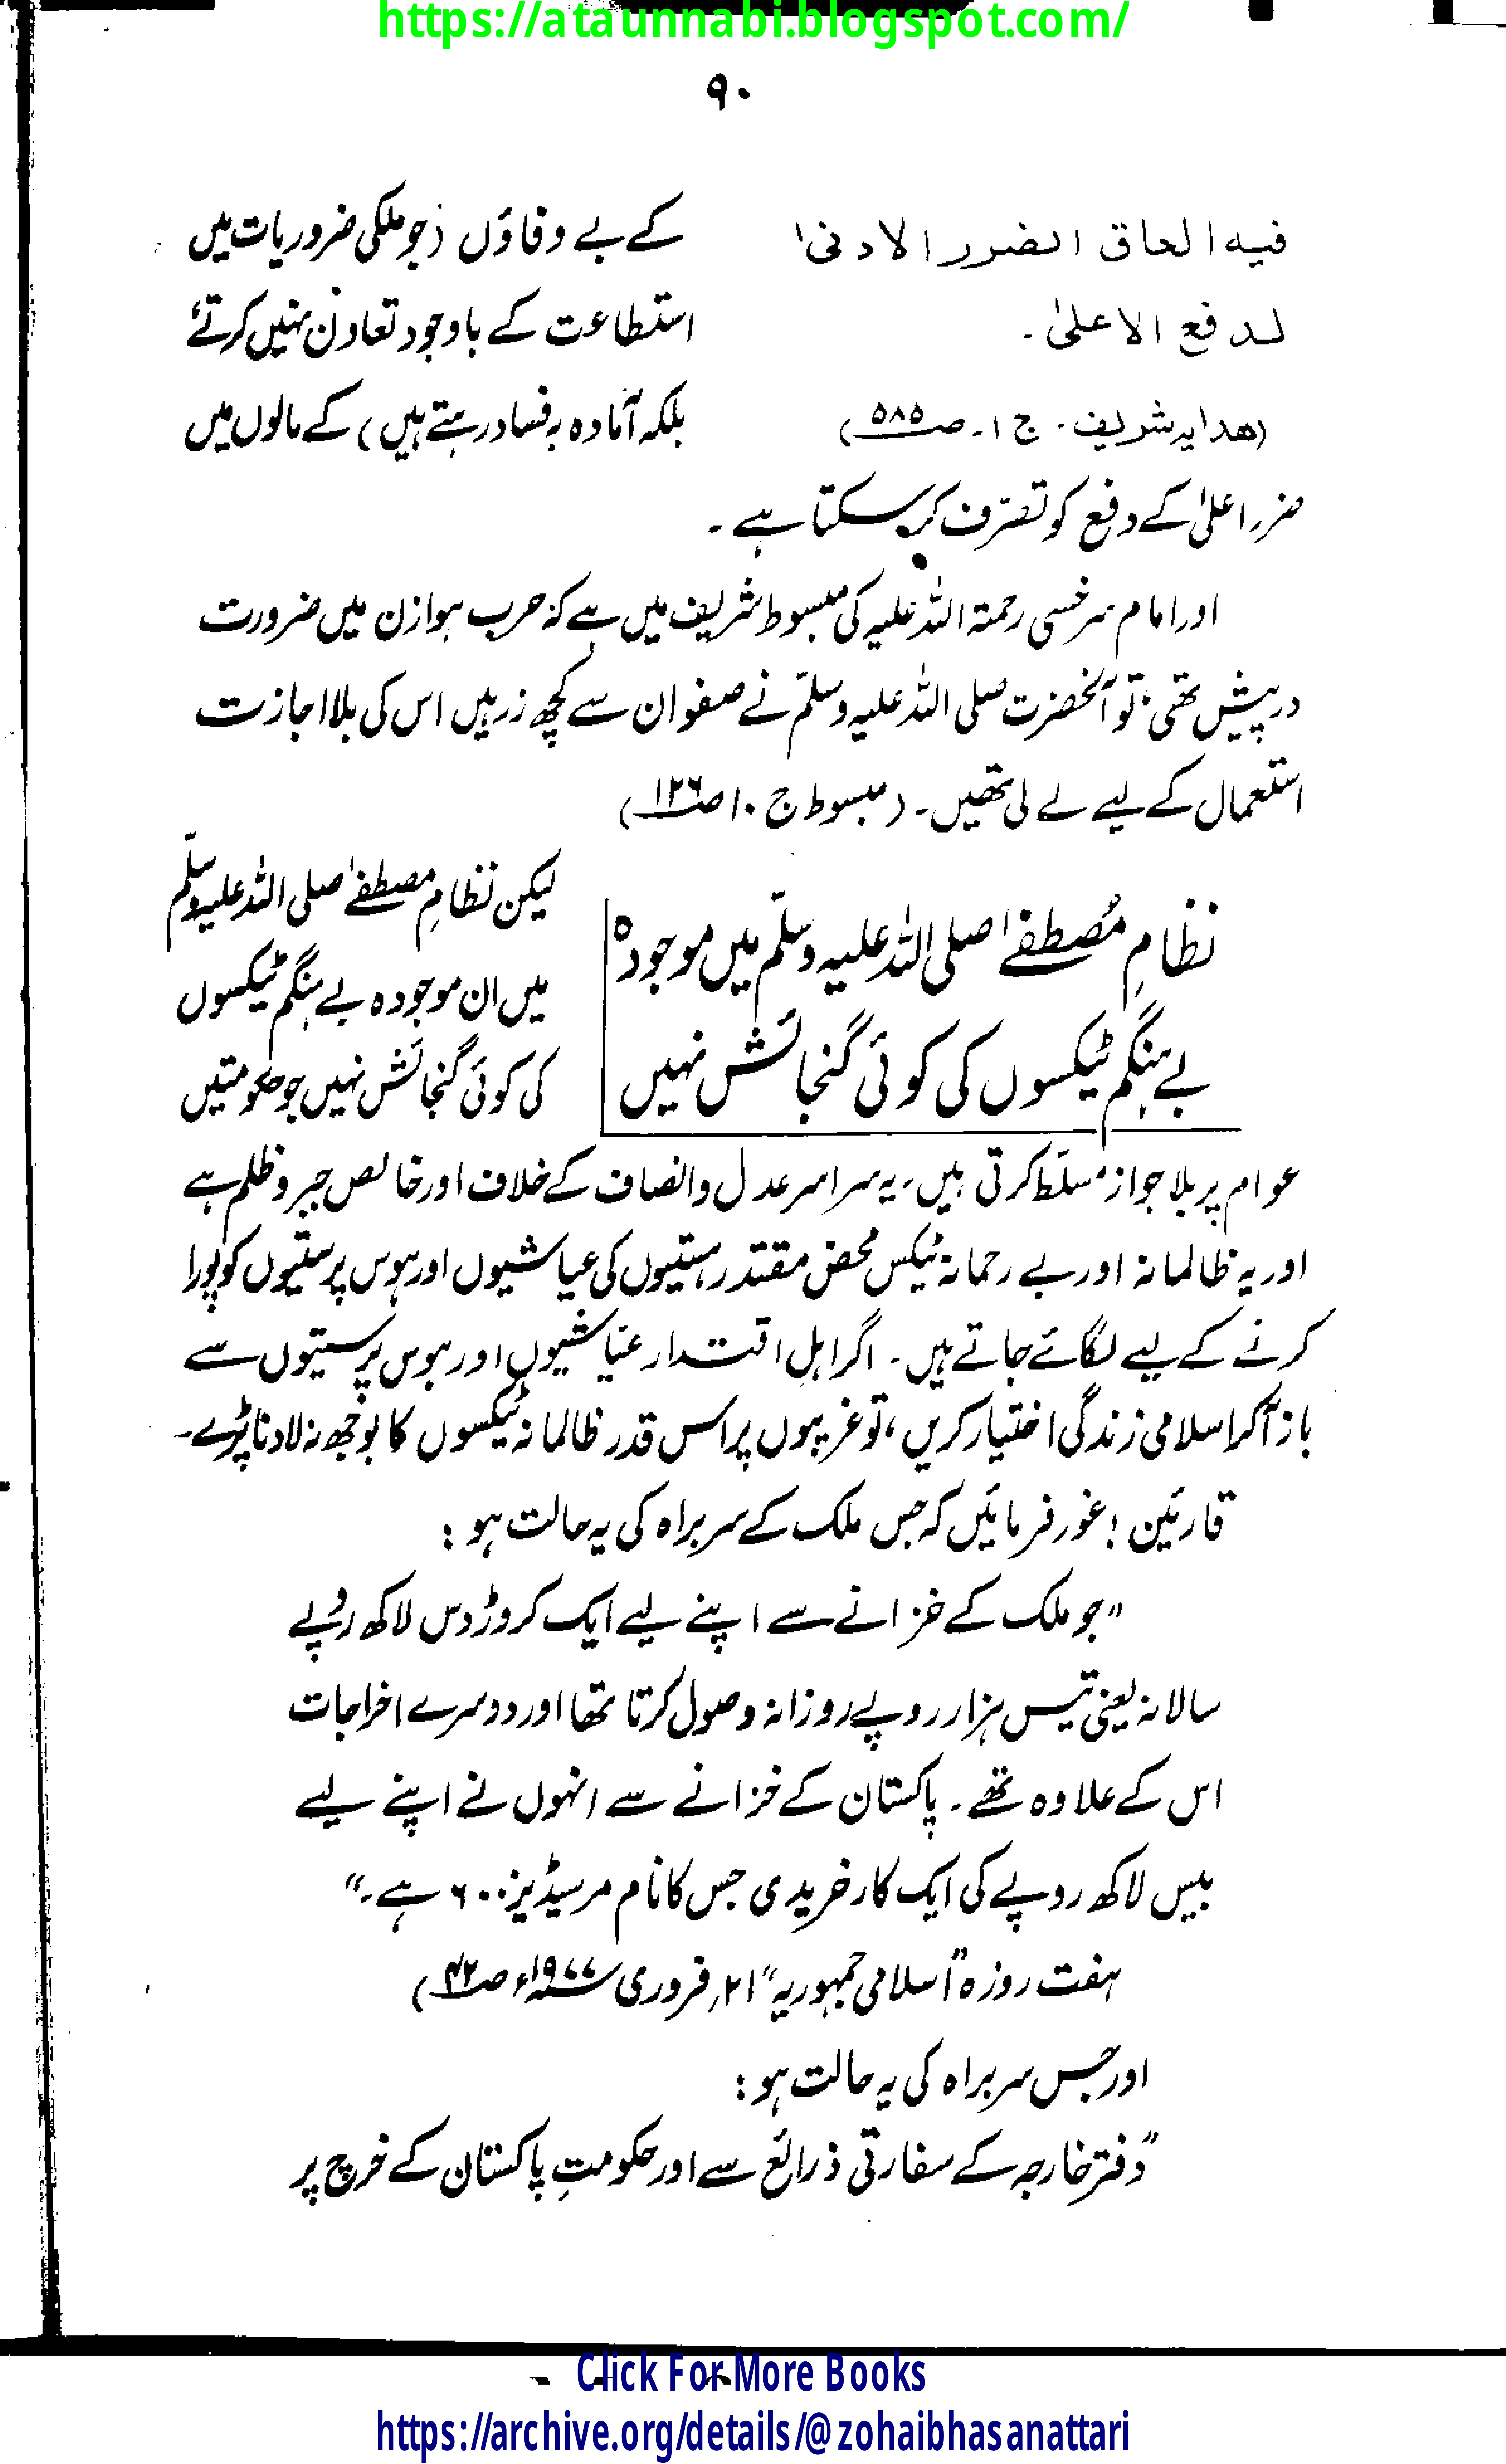 https://ataunnabi.blogspot.com/
۹۰
فیه الحاق الضرر الادنیٰ
لدفع الاعلیٰ۔
(هدایه شریف۔ ج ۱۔ ص ۵۸۵)
کے بے وفاؤں (جو ملکی ضروریات میں
استطاعت کے باوجود تعاون نہیں کرتے
بلکہ آمادہ بہ فساد رہتے ہیں) کے مالوں میں
ضرر اعلیٰ کے دفع کو تصرّف کر سکتا ہے۔
اور امام سرخسی رحمۃ اللہ علیہ کی مبسوط شریف میں ہے کہ حرب ہوازن میں ضرورت
درپیش تھی، تو آنحضرت صلی اللہ علیہ وسلّم نے صفوان سے کچھ زرہیں اس کی بلا اجازت
استعمال کے لیے لے لی تھیں۔ (مبسوط ج ۱۰ ص ۱۲۶)
نظامِ مُصطفےٰ صلی اللہ علیہ وسلّم میں موجودہ
بے ہنگم ٹیکسوں کی کوئی گنجائش نہیں
لیکن نظامِ مصطفےٰ صلی اللہ علیہ وسلّم
میں ان موجودہ بے ہنگم ٹیکسوں
کی کوئی گنجائش نہیں جو حکومتیں
عوام پر بلا جواز مسلّط کرتی ہیں، یہ سراسر عدل وانصاف کے خلاف اور خالص جبر و ظلم ہے
اور یہ ظالمانہ اور بے رحمانہ ٹیکس محض مقتدر ہستیوں کی عیاشیوں اور ہوس پرستیوں کو پورا
کرنے کے لیے لگائے جاتے ہیں۔ اگر اہلِ اقتدار عیّاشیوں اور ہوس پرستیوں سے
باز آکر اسلامی زندگی اختیار کریں، تو غریبوں پر اس قدر ظالمانہ ٹیکسوں کا بوجھ نہ لادنا پڑے۔
قارئین! غور فرمائیں کہ جس ملک کے سربراہ کی یہ حالت ہو :
"جو ملک کے خزانے سے اپنے لیے ایک کروڑ دس لاکھ روپے
سالانہ یعنی تیس ہزار روپے روزانہ وصول کرتا تھا اور دوسرے اخراجات
اس کے علاوہ تھے۔ پاکستان کے خزانے سے انہوں نے اپنے لیے
بیس لاکھ روپے کی ایک کار خریدی جس کا نام مرسیڈیز ۶۰۰ ہے۔"
ہفت روزہ "اسلامی جمہوریہ" ۲۱ فروری ۱۹۷۷ء ص ۴۲)
اور جس سربراہ کی یہ حالت ہو :
"دفتر خارجہ کے سفارتی ذرائع سے اور حکومتِ پاکستان کے خرچ پر
Click For More Books
https://archive.org/details/@zohaibhasanattari